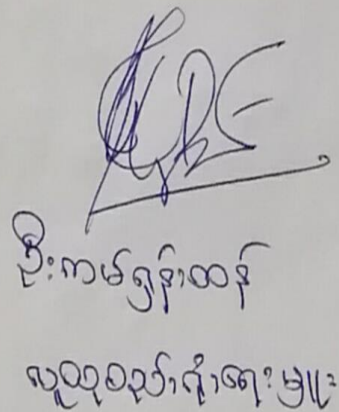 ဦးကမ်ရှန်ထန်
လူထုစည်းရုံးရေးမှူး